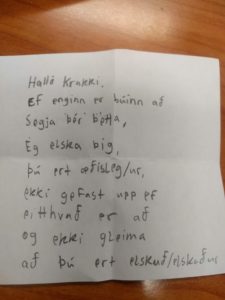 Halló Krakki.
Ef enginn er búinn að
Segja þér þetta,
Ég elska þig,
þú ert æðisleg/ur,
ekki gefast upp ef
eitthvað er að
og ekki gleima
að þú ert elskuð/elskaður